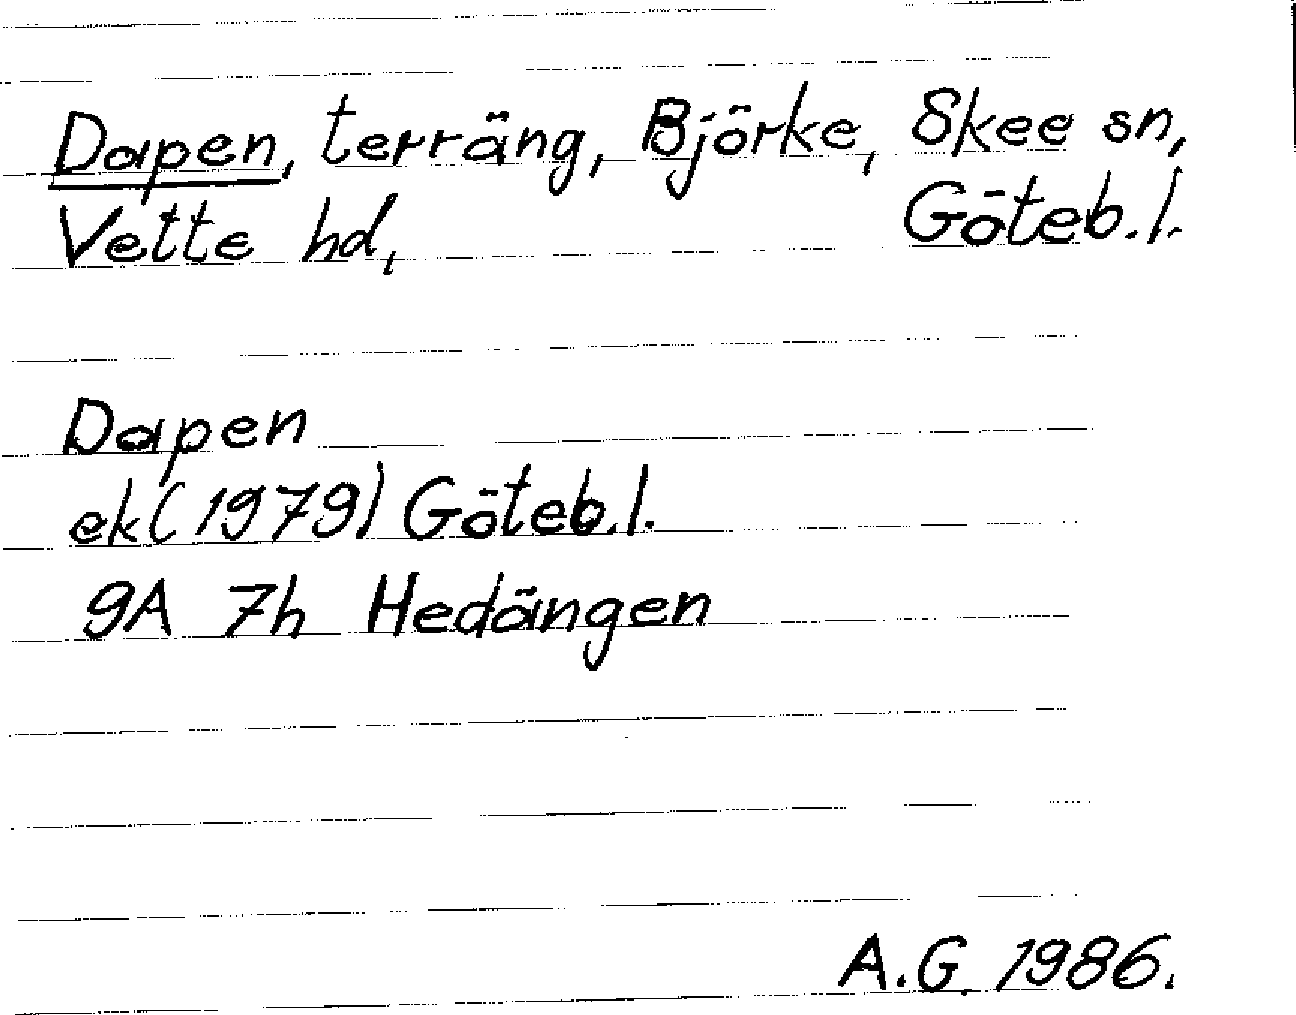 Dapen, terräng, Björke, Skee sn,
Vette hd, Göteb.l.
Dapen
ek(1979) Göteb.l.
9A 7h Hedängen
A.G. 1986.